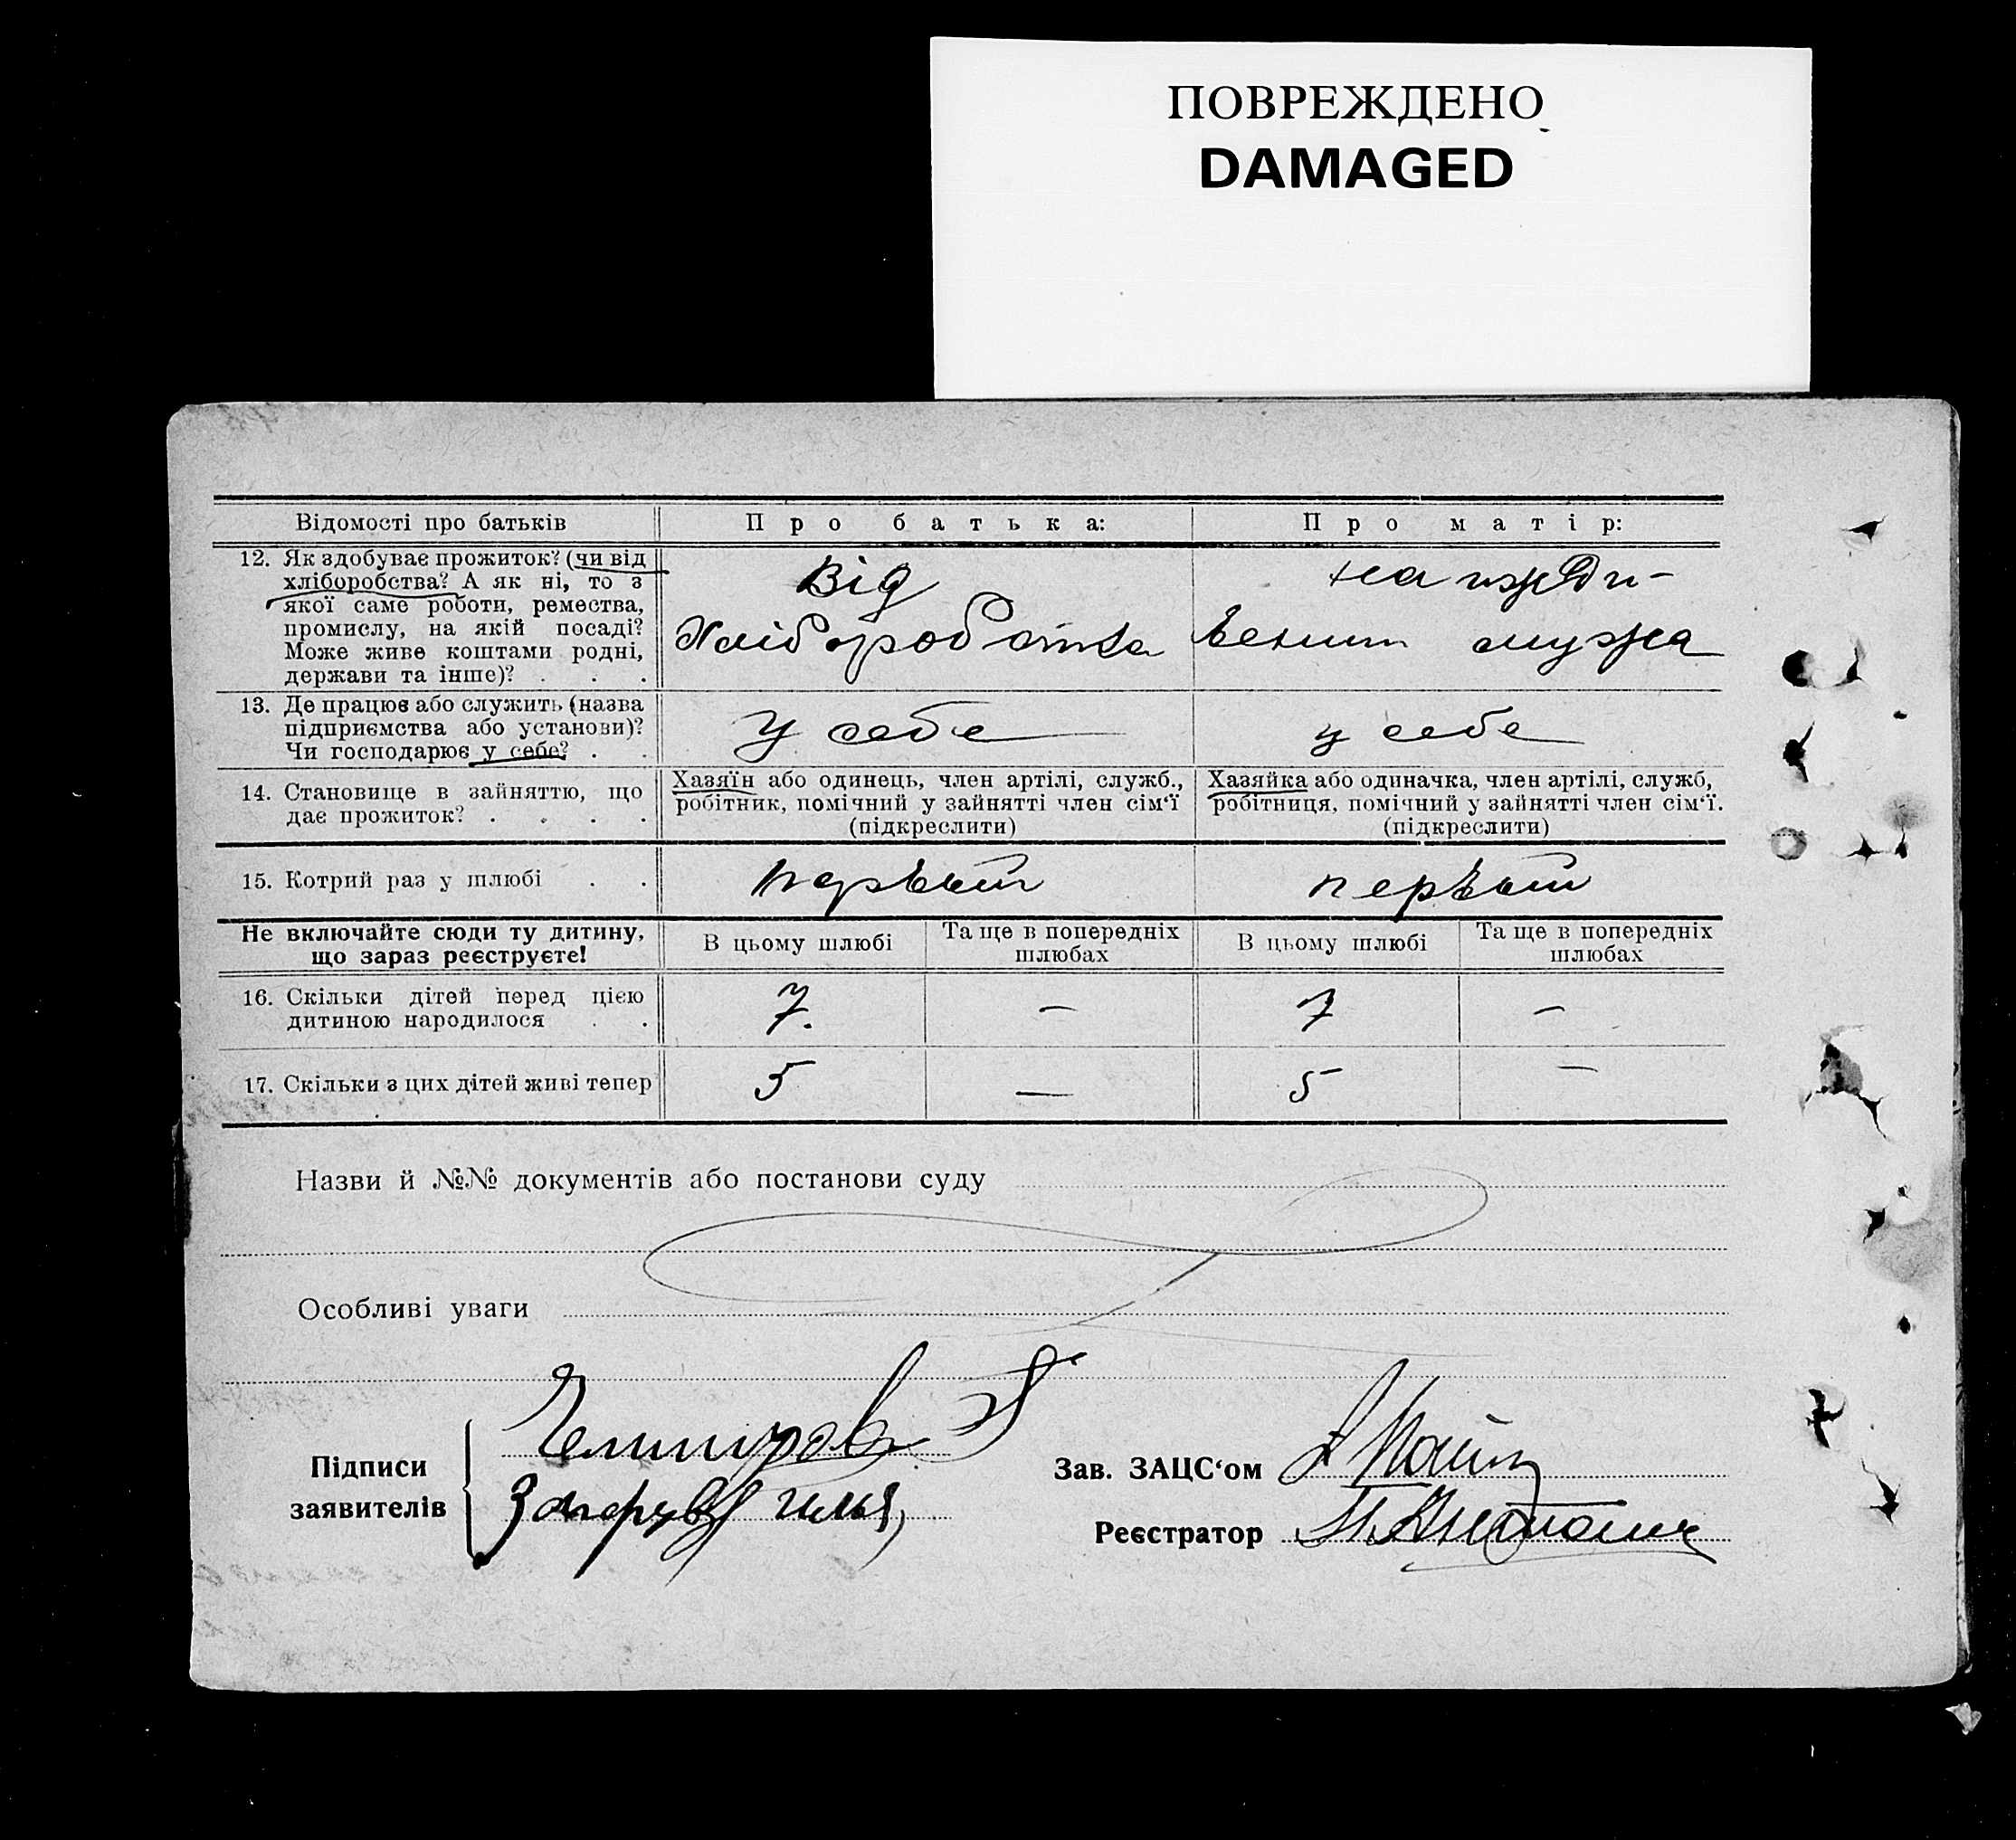 ПОВРЕЖДЕНО
DAMAGED
Відомості про батьків
Про батька:
Про матір:
12. Як здобуває прожиток? (чи від
хліборобства? А як ні, то з
якої саме роботи, ремества,
промислу, на якій посаді?
Може живе коштами родні,
держави та інше)? . . .
Від
Хліборобства
на ижди-
вении мужа
13. Де працює або служить (назва
підприємства або установи)?
Чи господарює у себе? . .
У себе
у себе
14. Становище в зайняттю, що
дає прожиток? . . . .
Хазяїн або одинець, член артілі, служб.,
робітник, помічний у зайнятті член сім'ї
(підкреслити)
Хазяйка або одиначка, член артілі, служб,
робітниця, помічний у зайнятті член сім'ї.
(підкреслити)
15. Котрий раз у шлюбі . .
первый
первый
Не включайте сюди ту дитину,
що зараз реєструєте!
В цьому шлюбі
Та ще в попередніх
шлюбах
В цьому шлюбі
Та ще в попередніх
шлюбах
16. Скільки дітей перед цією
дитиною народилося . .
7.
—
7
—
17. Скільки з цих дітей живі тепер
5
—
5
—
Назви й №№ документів або постанови суду
Особливі уваги
Підписи
заявителів
Зав. ЗАЦС'ом
Реєстратор